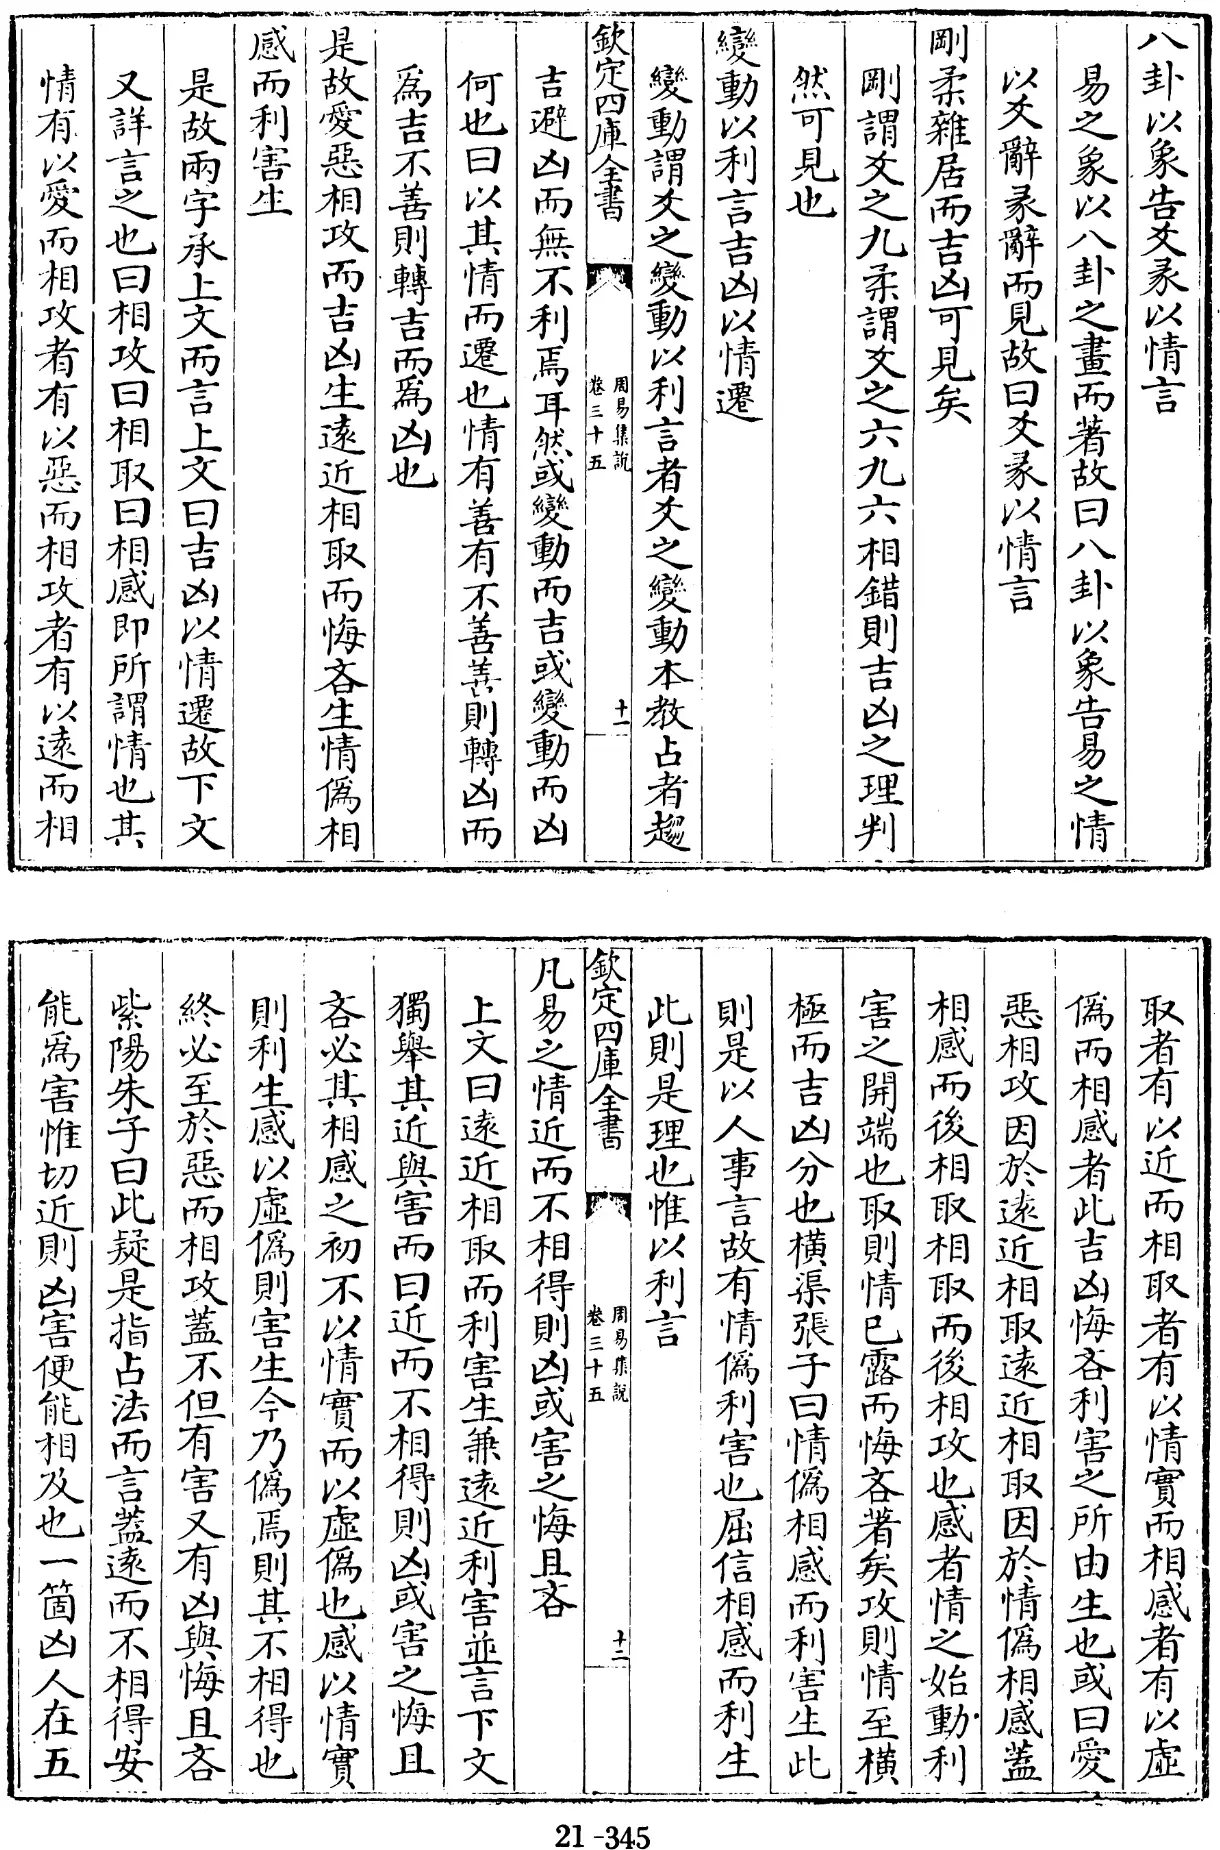 八卦以象告爻彖以情言
易之象以八卦之畫而著故曰八卦以象告易之情
以爻辭彖辭而見故曰爻彖以情言
剛柔雜居而吉凶可見矣
剛謂爻之九柔謂爻之六九六相錯則吉凶之理判
然可見也
變動以利言吉凶以情遷
變動謂爻之變動以利言者爻之變動本教占者趨
欽定四庫全書
周易集說
卷三十五
十一
吉避凶而無不利焉耳然或變動而吉或變動而凶
何也曰以其情而遷也情有善有不善善則轉凶而
為吉不善則轉吉而為凶也
是故愛惡相攻而吉凶生遠近相取而悔吝生情偽相
感而利害生
是故兩字承上文而言上文曰吉凶以情遷故下文
又詳言之也曰相攻曰相取曰相感即所謂情也其
情有以愛而相攻者有以惡而相攻者有以遠而相
取者有以近而相取者有以情實而相感者有以虛
偽而相感者此吉凶悔吝利害之所由生也或曰愛
惡相攻因於遠近相取遠近相取因於情偽相感蓋
相感而後相取相取而後相攻也感者情之始動利
害之開端也取則情已露而悔吝著矣攻則情至橫
極而吉凶分也橫渠張子曰情偽相感而利害生此
則是以人事言故有情偽利害也屈信相感而利生
此則是理也惟以利言
欽定四庫全書
周易集說
卷三十五
十二
凡易之情近而不相得則凶或害之悔且吝
上文曰遠近相取而利害生兼遠近利害並言下文
獨舉其近與害而曰近而不相得則凶或害之悔且
吝必其相感之初不以情實而以虛偽也感以情實
則利生感以虛偽則害生今乃偽焉則其不相得也
終必至於惡而相攻蓋不但有害又有凶與悔且吝
紫陽朱子曰此疑是指占法而言蓋遠而不相得安
能為害惟切近則凶害便能相及也一箇凶人在五
21-345